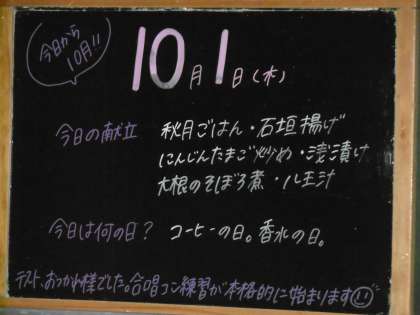 今日から
10月!!
10月1日(木)
今日の献立 秋月ごはん・石垣揚げ
にんじんたまご炒め・浅漬け
大根のそぼろ煮・八王汁
今日は何の日? コーヒーの日。香水の日。
テスト、おつかれ様でした。合唱コン練習が本格的に始まります